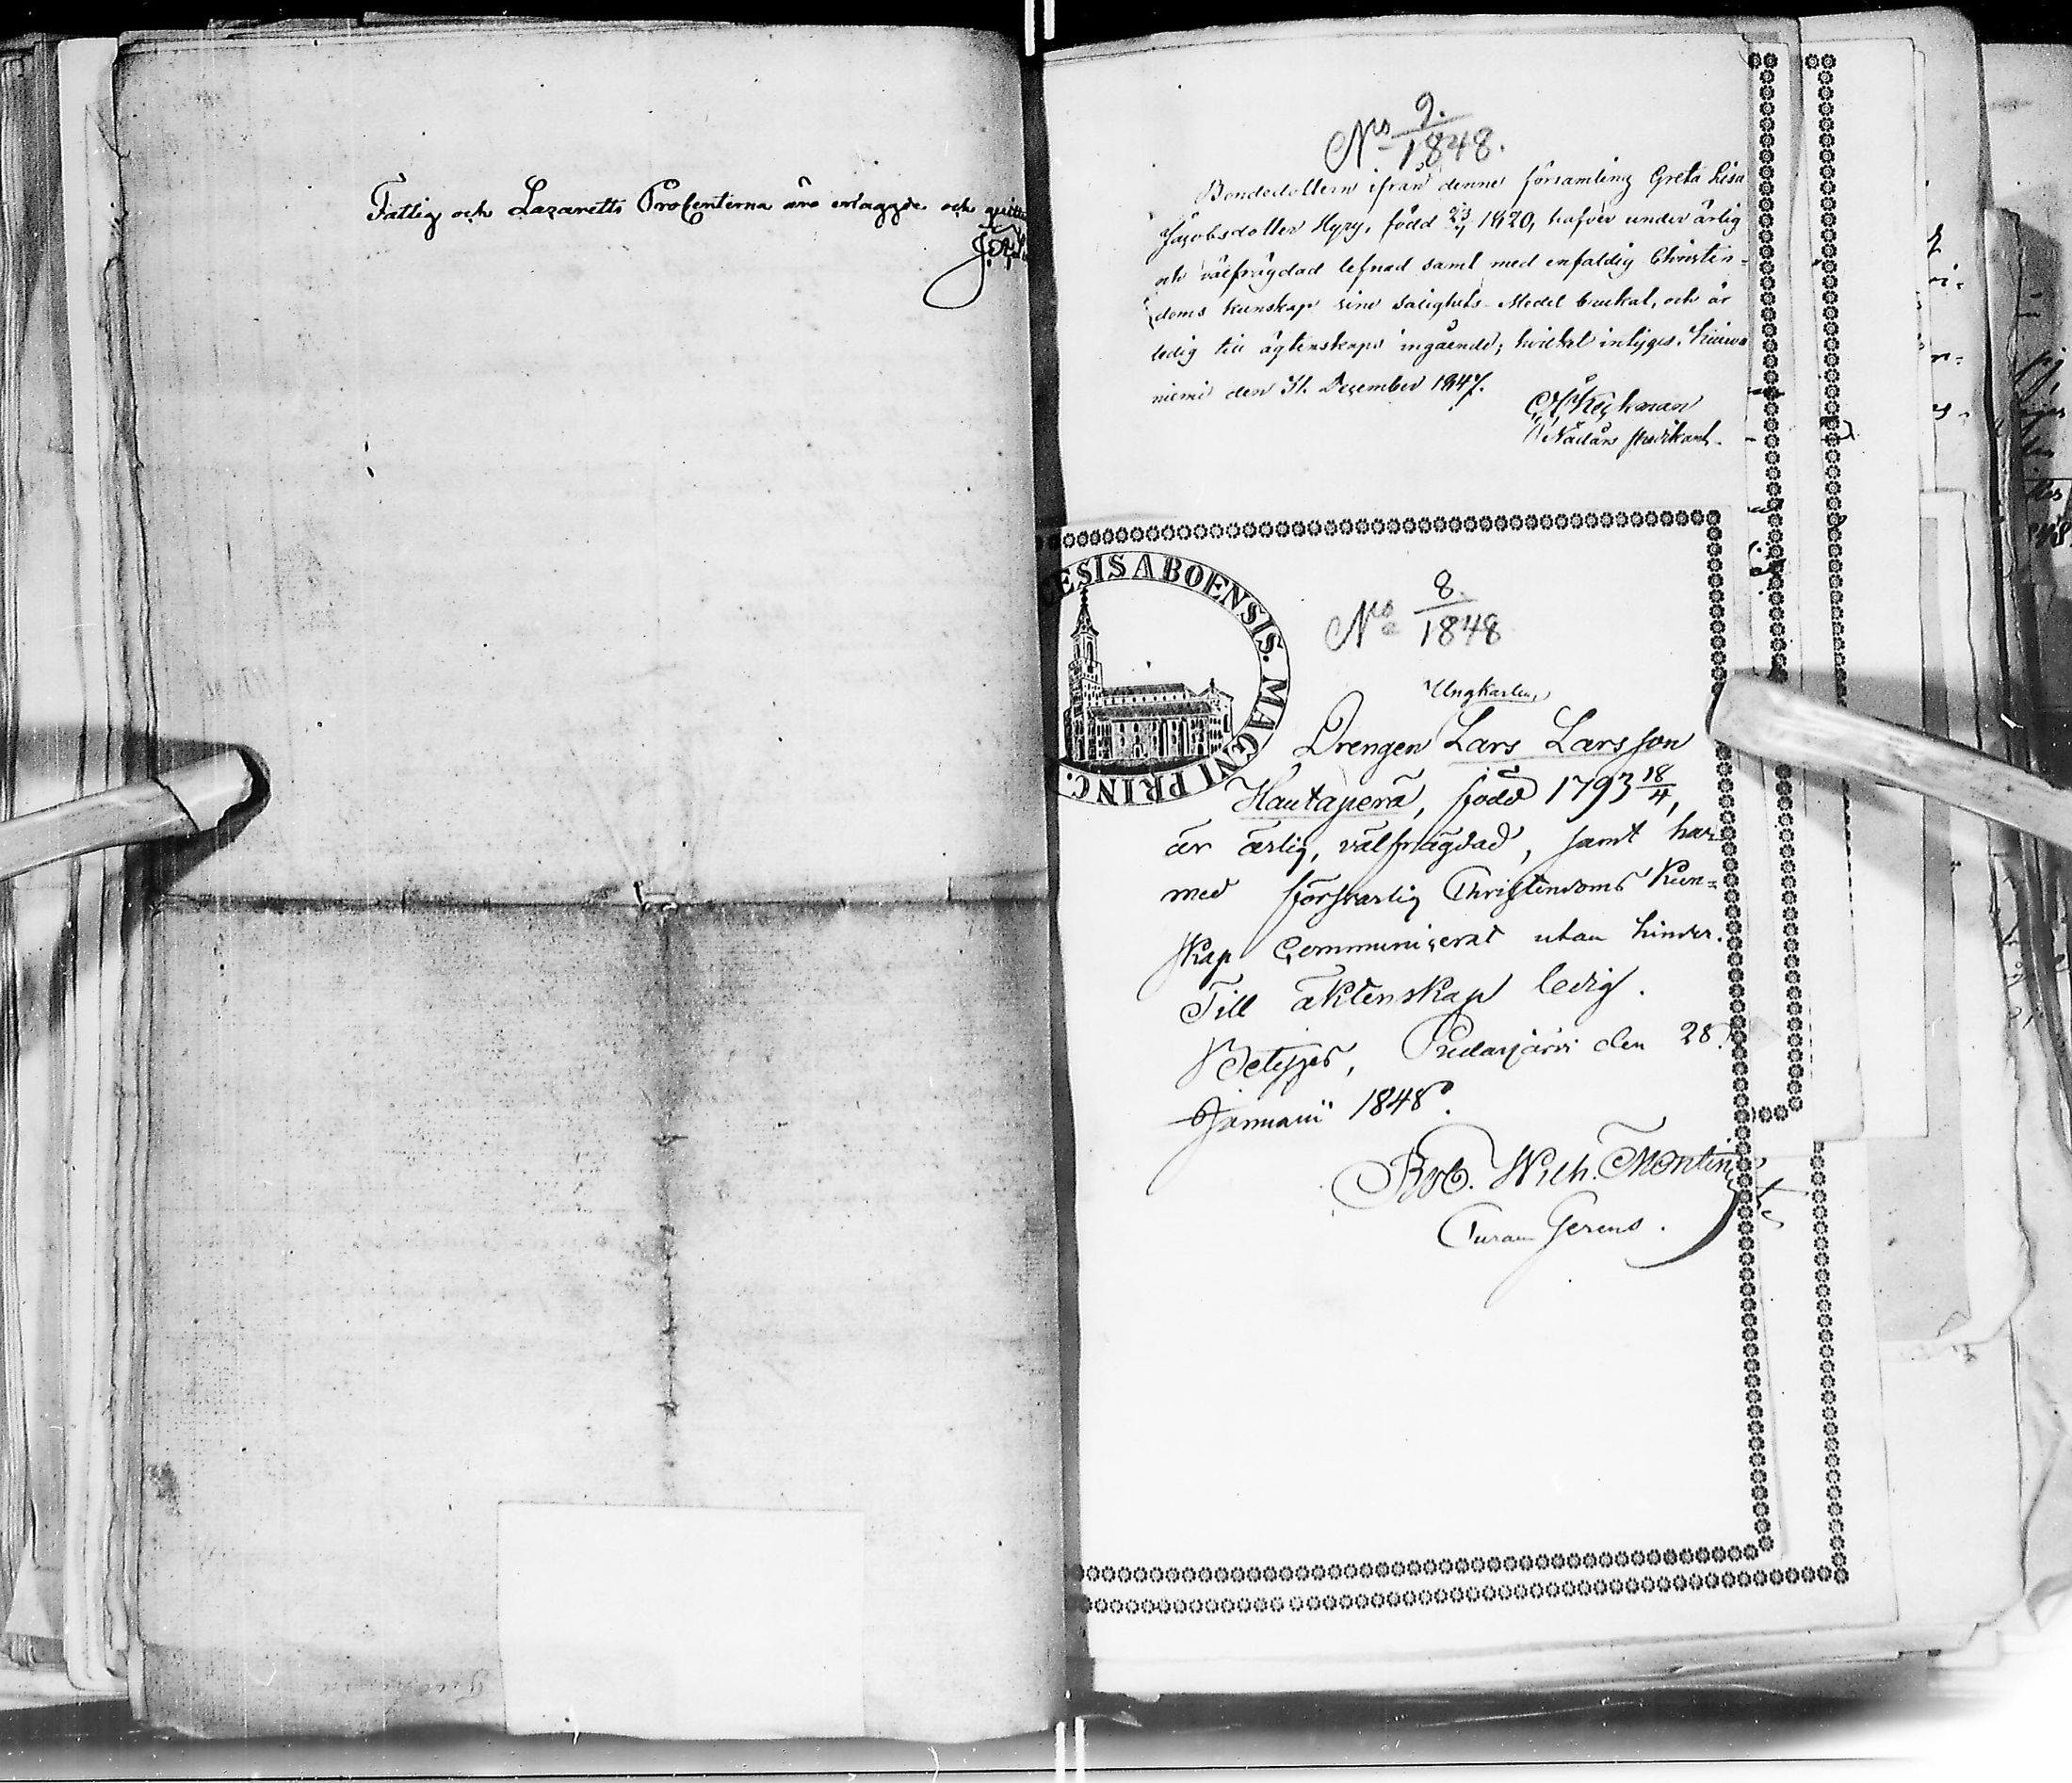 Fattig och Lazaretts Procenterna äro erlaggde och
No 9./1848.
Bondedottern ifrån denne församling Greta Lisa
Jacobsdotter Hyry, född 1820, hafver under ärlig
och välfrägdad lefnad samt med enfaldig Christen-
doms kunskap sine Salighets-Medel brukat, och är
ledig till ägtenskaps ingående; hvilket intyges. Kuiva
niemi den 31. December 1847.
Keckman
Nådårs Predikant.
CESIS ABOENSIS. MAGNI PRINC.
No 8./1848
Ungkarlen
Drengen Lars Larsson
Hautaperä, född 1793 18/4,
är ärlig, välfrägdad, samt har
med försvarlig Christendoms Kun=
skap Communicerat utan hinder.
Till äktenskap ledig.
Betyges, Pudasjärvi den 28.
Januarii 1848.
Rob. Wilh. Montin
Curam Gerens.